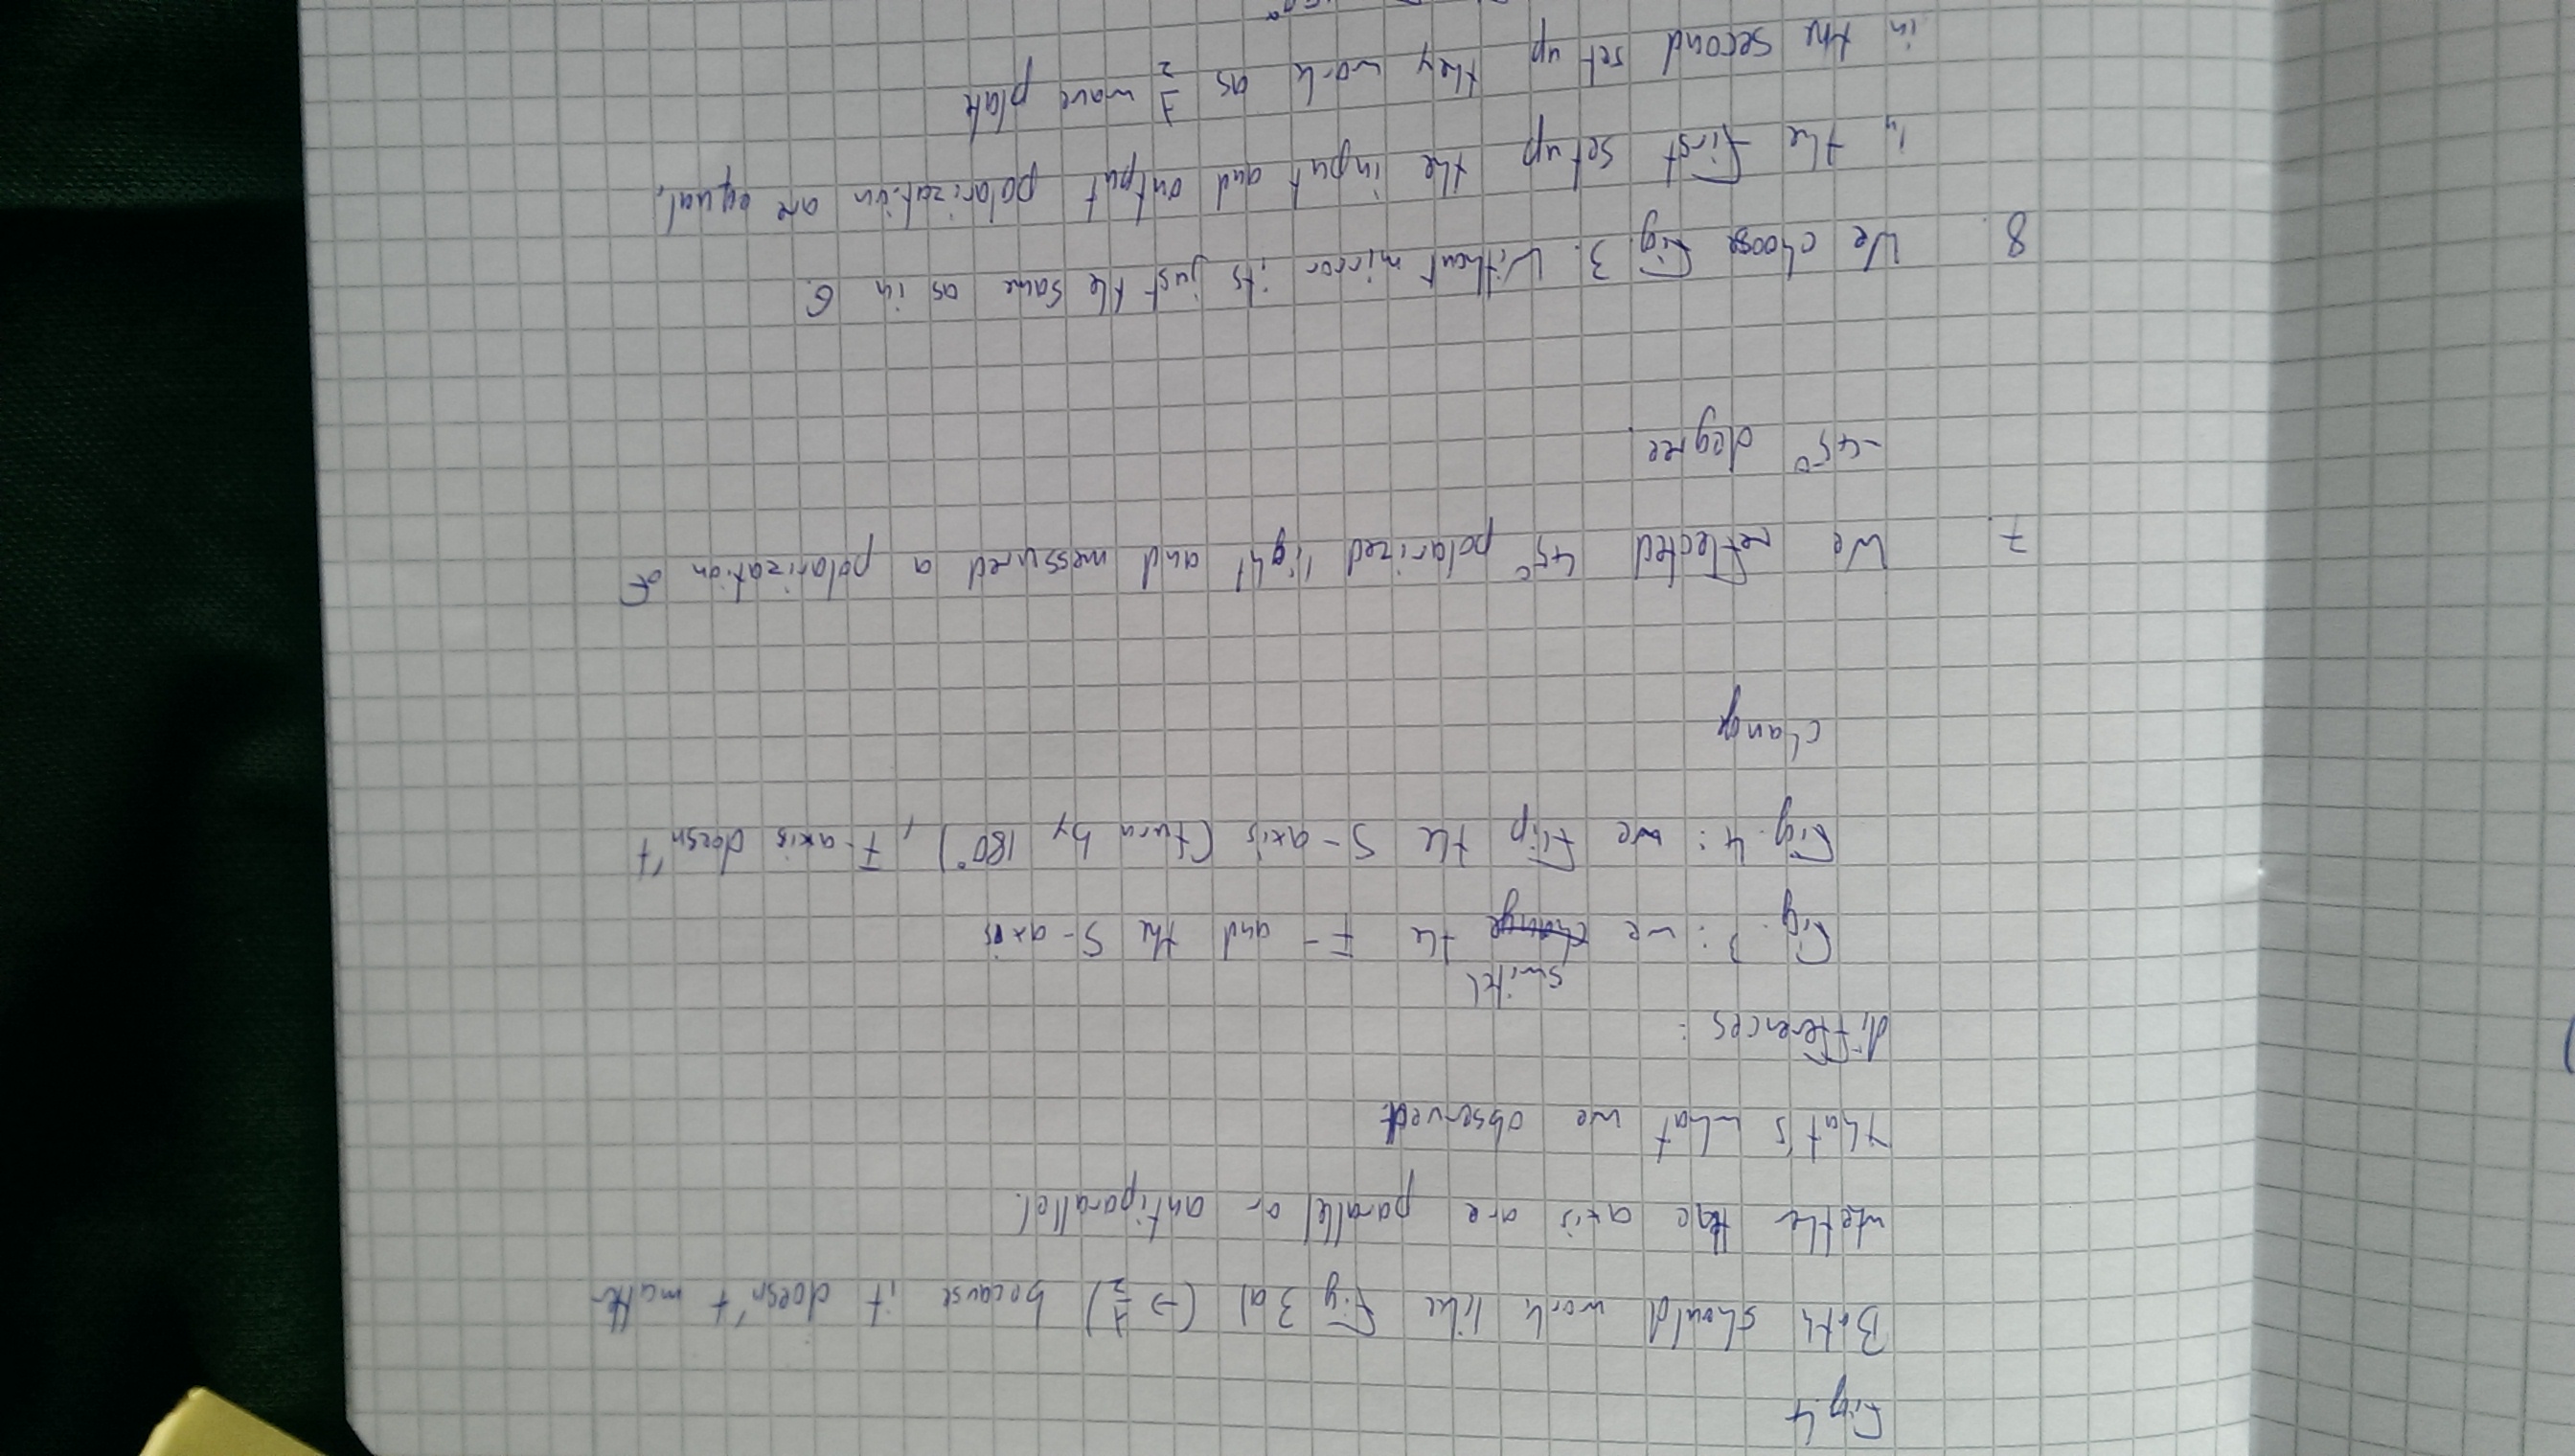 Fig. 4
Both should work like Fig 3 a) (→ λ/2) because it doesn't matter
whether the axis are parallel or antiparallel.
that's what we observed
differences:
switch
Fig. 3: we change the F- and the S-axis
Fig. 4: we flip the S-axis (turn by 180°), F-axis doesn't
change
7. We reflected 45° polarized light and messured a polarization of
-45° degree.
8. We choose Fig. 3. Without mirror its just the same as in 6.
in the first set up the input and output polarization are equal,
in the second set up they work as λ/2 wave plate